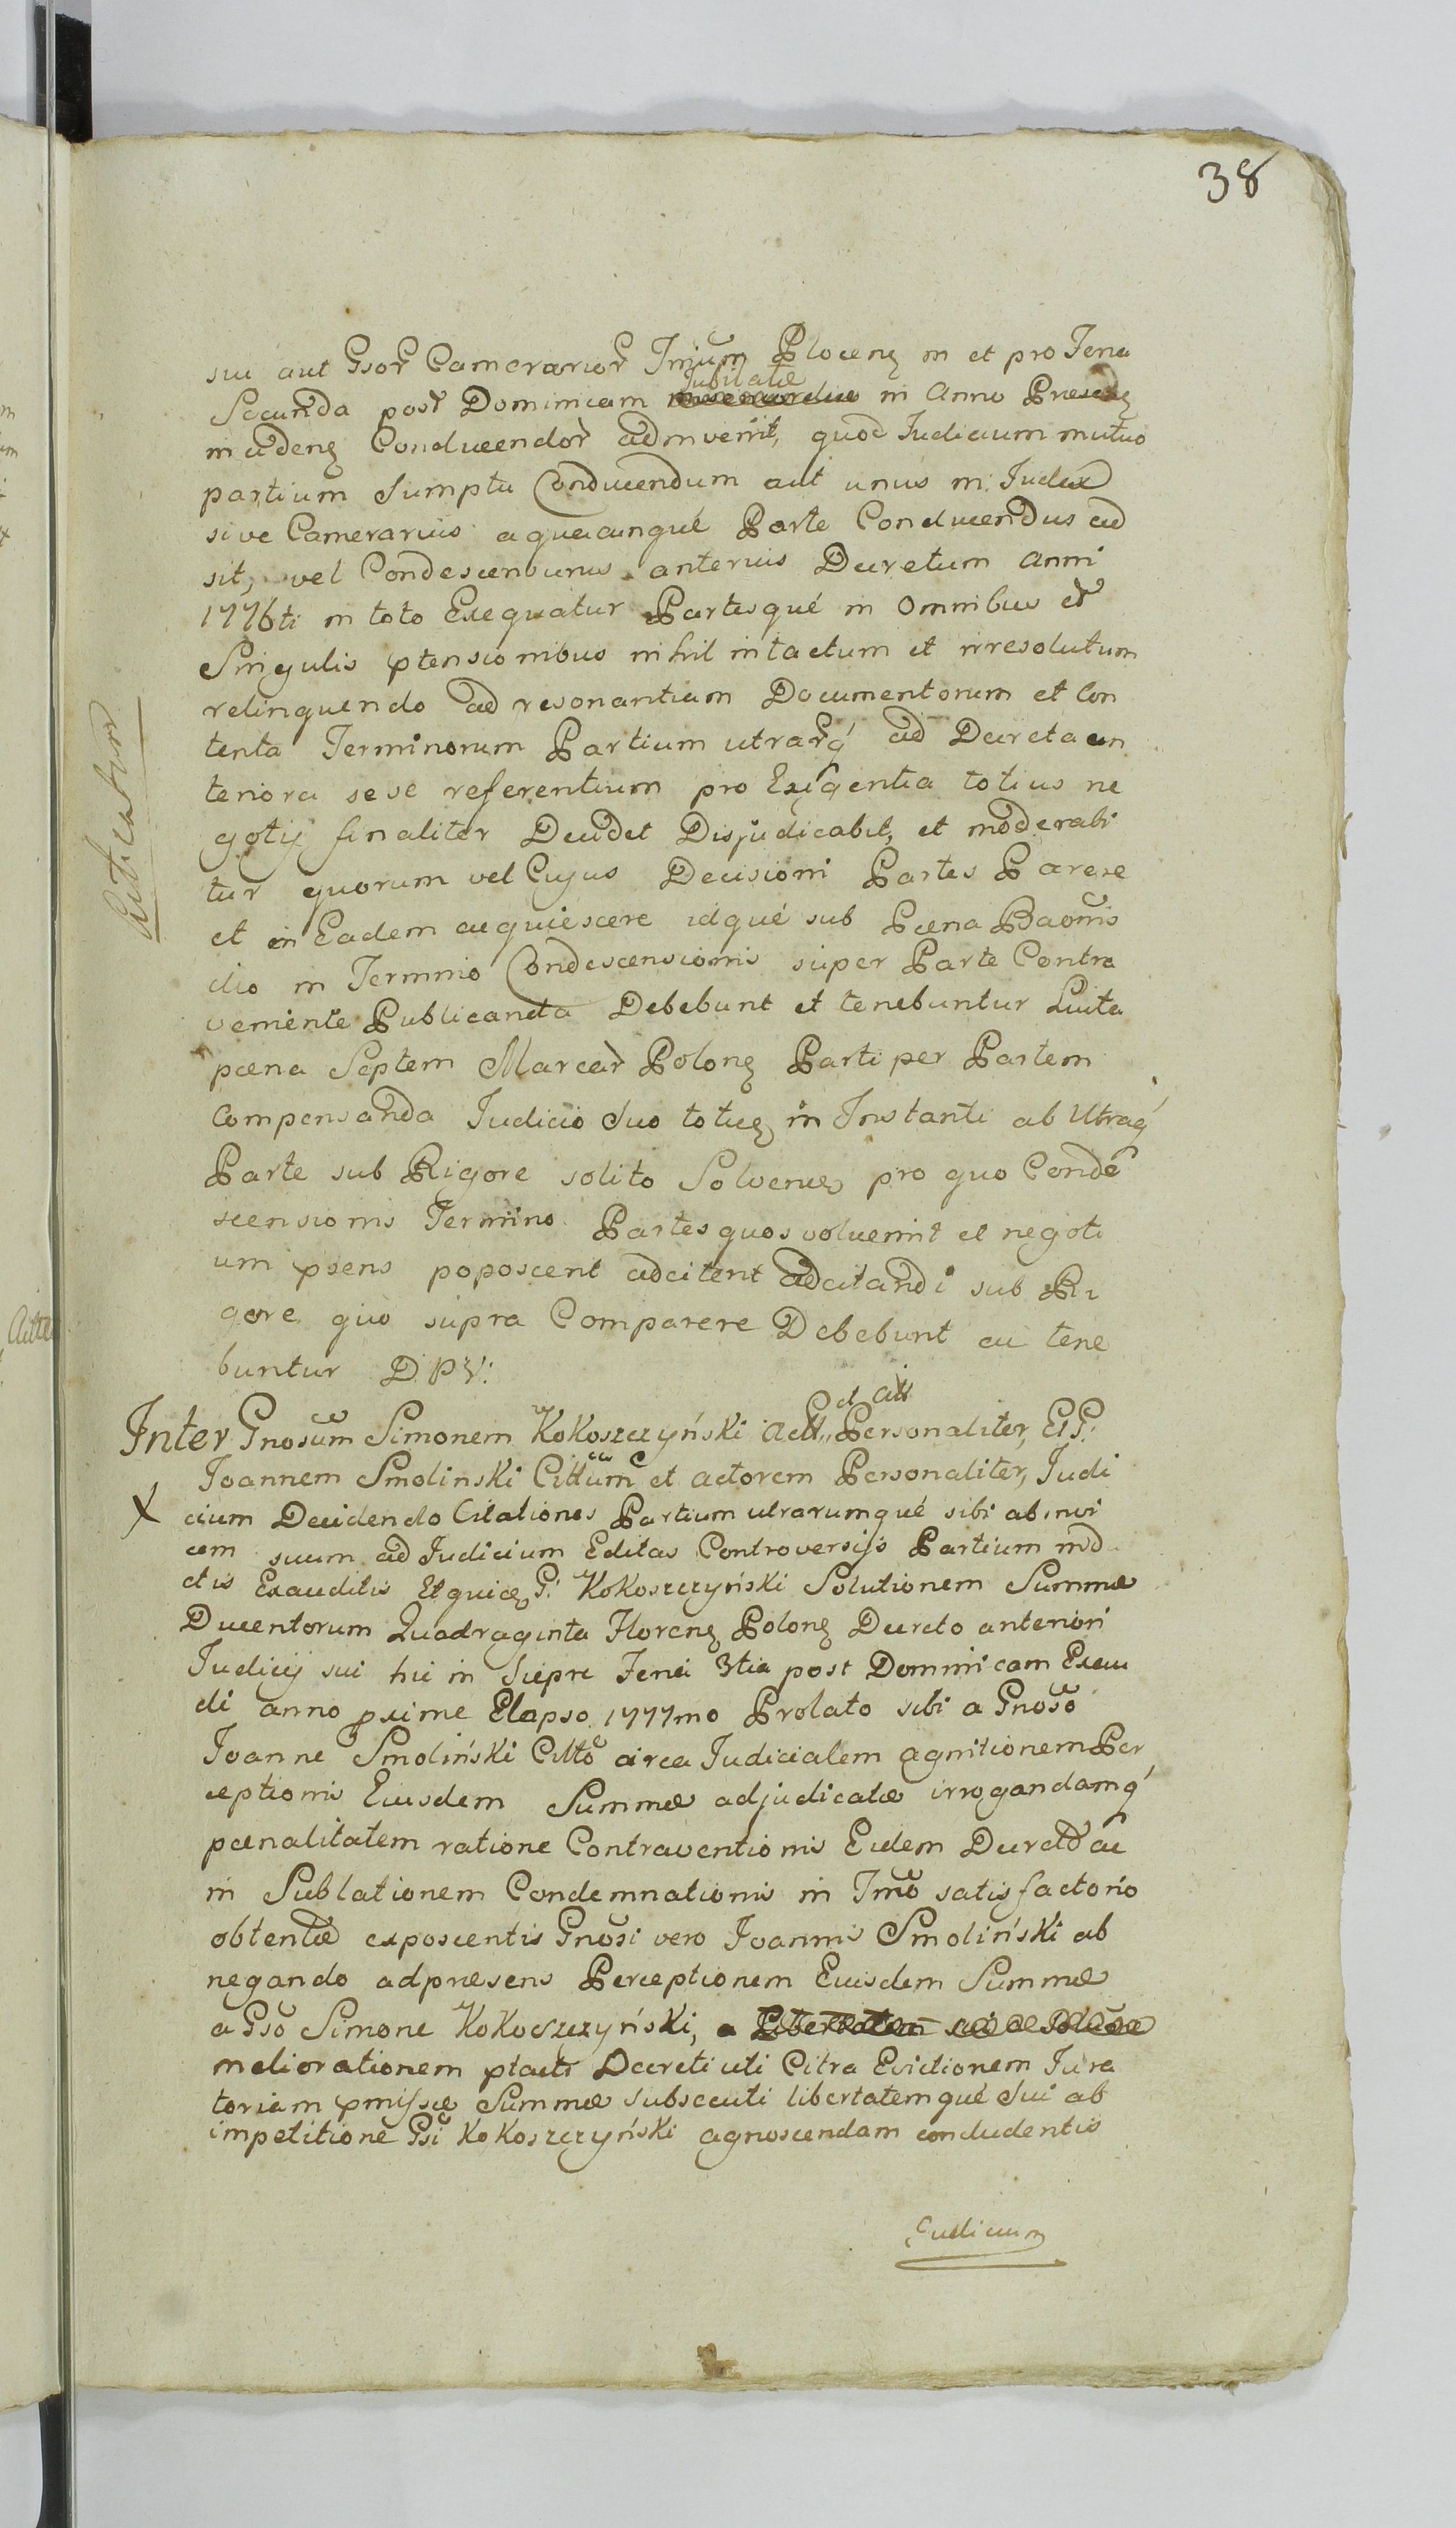 38
sui aut Gsor Camerarior Trium Plocens in et pro Feria
Secunda post Dominicam Jubilate misericordiae in Anno Presenz
in ibidenz Conducendor adinvenit, quod Iudicium mutuo
partium Sumptu Conducendum aut unus in Iudex
sive Camerarius a quacunquè Parte Conducendus ad
sit, vel Condescensurus anterius Decretum Anni
1776ti in toto Exequatur Partesquè in Omnibus et
Singulis ptensionibus nihil intactum et irresolutum
relinquendo ad resonantiam Documentorum et Con
tenta Terminorum Partium utrarq́ ad Decreta an
teriora sese referentium pro Exigentia totius ne
gotij finaliter Decidet Disjudicabit, et moderabi
tur quorum vel Cujus Decisioni Partes Parere
et in Eadem acquiescere idquè sub Pcena Baonis
in Termino Condescensionis super Parte Contra
veniente Publicanda Debebunt et tenebuntur Luita
pcena Septem Marcar Polonz Parti per Partem
Compensanda Iudicio Suo in Instanti ab Utraq́
Parte sub Rigore solito pro quo Conde
scensionis Termino Partes quos voluerint et negoti
um psens poposcerit adcitent adcitandi sub Ri
gore quo supra Comparere Debebunt ac tene
buntur D.P.V:
Ratificatur
Inter Gnosum Simonem Kokoszczyński Act. et Citt Personaliter, Et G:
Joannem Smolinski Cittum et actorem Personaliter, Judi
X cium Decidendo Citationes Partium utrarumquè sibi ab invi
cem suum ad Iudicium Editas Controversijs Partium
ctis Exauditis Et G: Kokoszczyński Solutionem Summæ
Ducentorum Quadraginta Florenz Polonz Decreto anteriori
Iudicij sui hic in Sieprc Feria 3tia post Dominicam Exau
di anno pxime Elapso 1777mo Prolato sibi a Gnoso
Joanne Smoliński Citto circa Iudicialem agnitionem Per
ceptionis Eiusdem Summæ adjudicatæ irrogandamq́
pcenalitatem ratione Contraventionis Eidem Decreto ac
in Sublationem Condemnationis in Tmo satisfactorio
obtentæ exposcentis Gnosi vero Joannis Smoliński ab
negando adpræsens Perceptionem Eiusdem Summæ
a Gso Simone Kokoszczyński, a Libertatem sui a
meliorationem ptacti Decreti uti Citra Evictionem Jura
toriam pmissæ Summæ subsecuti libertatemquè Sui ab
impetitione Gsi Kokoszczyński agnoscendam concludentis
Iudicium